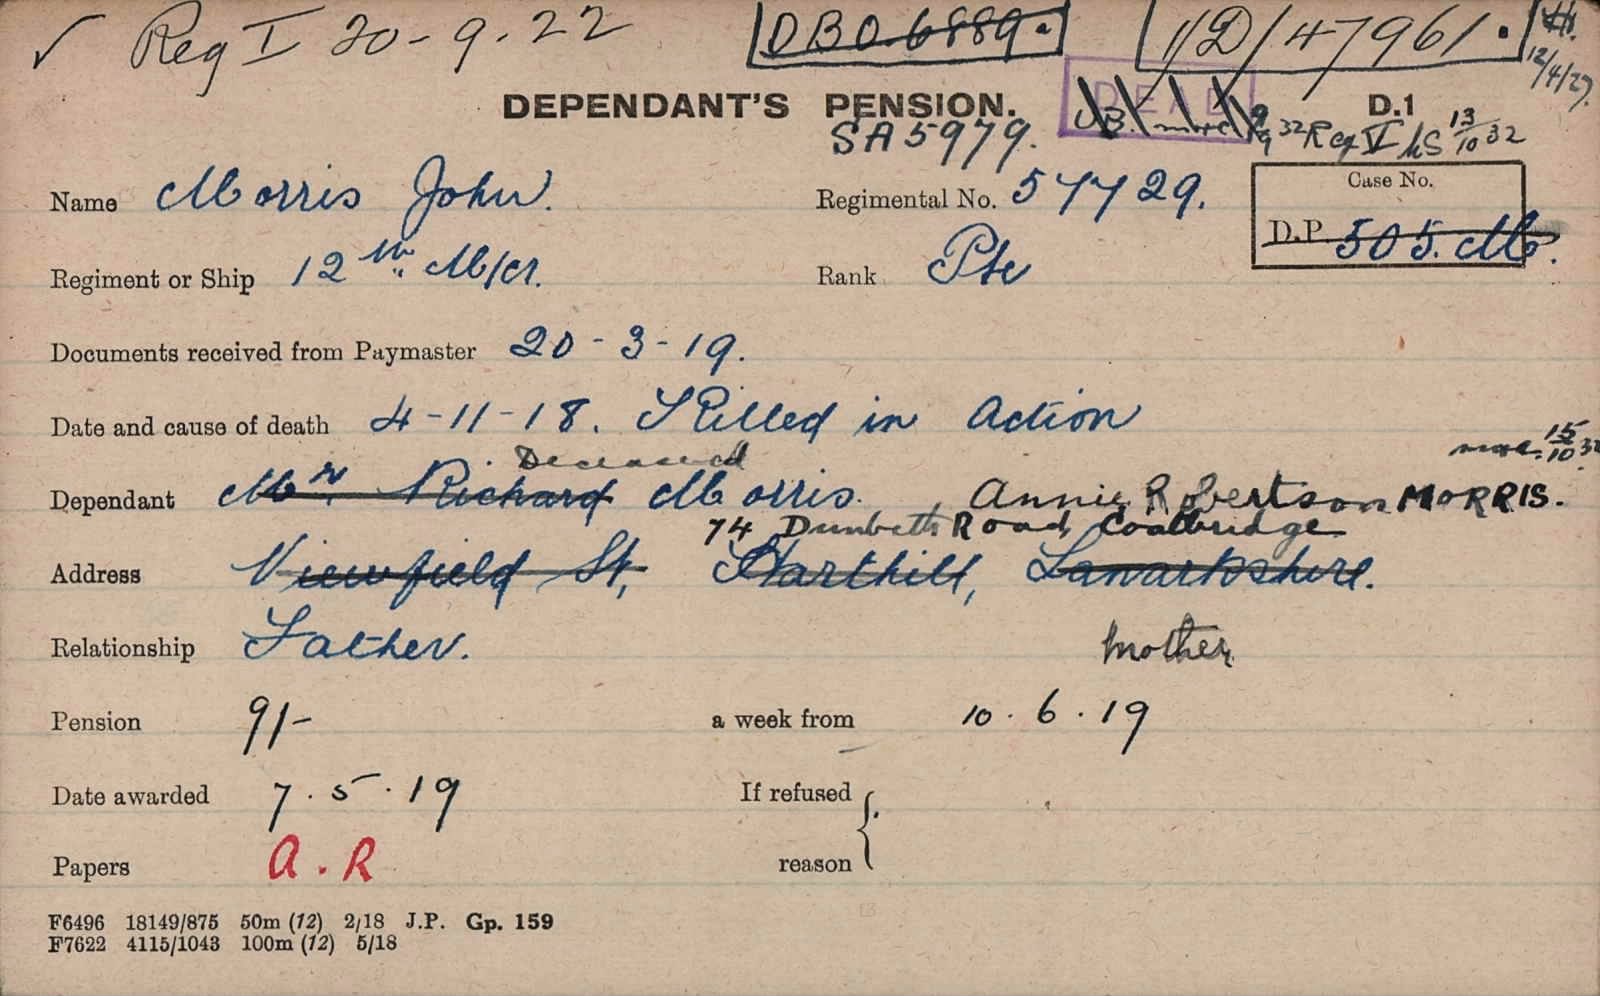 ✓ Reg I 20-9.22 DBO.6889. 1/D/47961.
12/4/27.
DEPENDANT'S PENSION. DEAD D.1
SA5979. 9/9 32 Reg V 13/10 32
Name Morris John. Regimental No. 57729. Case No.
D.P. 505.M.
Regiment or Ship 12th M/cr. Rank Pte
Documents received from Paymaster 20-3-19.
Date and cause of death 4-11-18. Killed in Action
Deceased 15/10 32
Dependant Mr. Richard Morris. Annie Robertson MORRIS.
74 Dunbeth Road, Coatbridge
Address Viewfield St, Harthill, Lanarkshire.
Relationship Father. Mother.
Pension 9/- a week from 10.6.19
Date awarded 7.5.19 If refused
Papers A.R reason
F6496 18149/875 50m (12) 2/18 J.P. Gp. 159
F7622 4115/1043 100m (12) 5/18